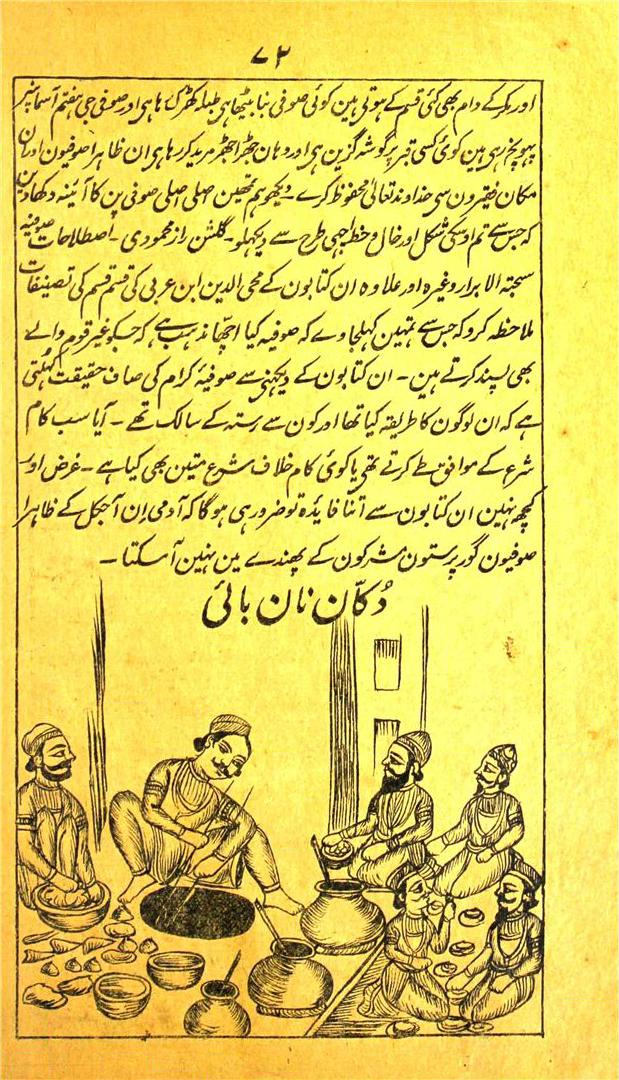 ۷۲
اور مکر کے دام بھی کئی قسم کے ہوتی ہین کوئی صوفی بنا بیٹھا ہی طبلہ کھڑک رہا ہی اور صوفی جی ہفتم آسمان پر
پہونچ رہی ہین کوئی کسی قبر پر گوشہ گزین ہی اور وہان جھڑا جھڑ مرید کر رہا ہی ان ظاہرا صوفیون اور ان
مکان فقیرون سی خداوند تعالی محفوظ کرے ۔ دیکھو ہم تمھین اصلی اصلی صوفی پن کا آئینہ دکھا دین
کہ جس سے تم اوسکی شکل اور خال و خط اچھی طرح سے دیکھلو ۔ گلشن راز محمودی ۔ اصطلاحات صوفیہ
سبحتہ الابرار وغیرہ اور علاوہ ان کتابون کے محی الدین ابن عربی کی قسم قسم کی تصنیفات
ملاحظہ کرو کہ جس سے تمہین کھلجاوے کہ صوفیہ کیا اچھا مذہب ہے کہ جسکو غیر قوم والے
بھی پسند کرتے ہین ۔ ان کتابون کے دیکھنی سے صوفیہ کرام کی صاف حقیقت کھلتی
ہے کہ ان لوگون کا طریقہ کیا تھا اور کون سے رستہ کے سالک تھے ۔ آیا سب کام
شرع کے موافق طے کرتے تھی یا کوئی کام خلاف شرع متین بھی کیا ہے ۔ غرض اور
کچھ نہین ان کتابون سے اتنا فایدہ تو ضرور ہی ہو گا کہ آدمی ان آجکل کے ظاہرا
صوفیون گور پرستون مشرکون کے پھندے مین نہین آ سکتا ۔
دُکان نان بائی